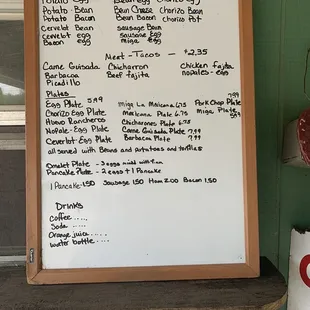 Potato Bean Bean Egg Chorizo Egg
Potato Bacon Bean Cheese Chorizo Bean
Cervelot Bean Bean Bacon Chorizo Pot
Cervelot Egg Sausage Bean
Bacon egg Sausage Egg
Migа Egg
Meat - Tacos - $2.35
Carne Guisada Chicharron Chicken fajita
Barbacoa Beef fajita nopales - egg
Picadillo
Plates
Egg Plate 5.99 Miga La Maicena 6.75 Pork Chop Plate 7.99
Chorizo Egg Plate Maicena Plate 6.75 Miga Plate 5.99
Huevo Rancheros Chicharones Plate 6.75
Nopale-Egg Plate Carne Guisada Plate 7.99
Ceverlot Egg Plate Barbacoa Plate 7.99
all served with Beans and potatoes and tortillas
Omelet Plate - 3 eggs mixed with
Pancake Plate - 2 eggs + 1 Pancake
1 Pancake 1.50 Sausage 1.50 Ham 2.00 Bacon 1.50
Drinks
Coffee ....
Soda ....
Orange juice ....
water bottle ....